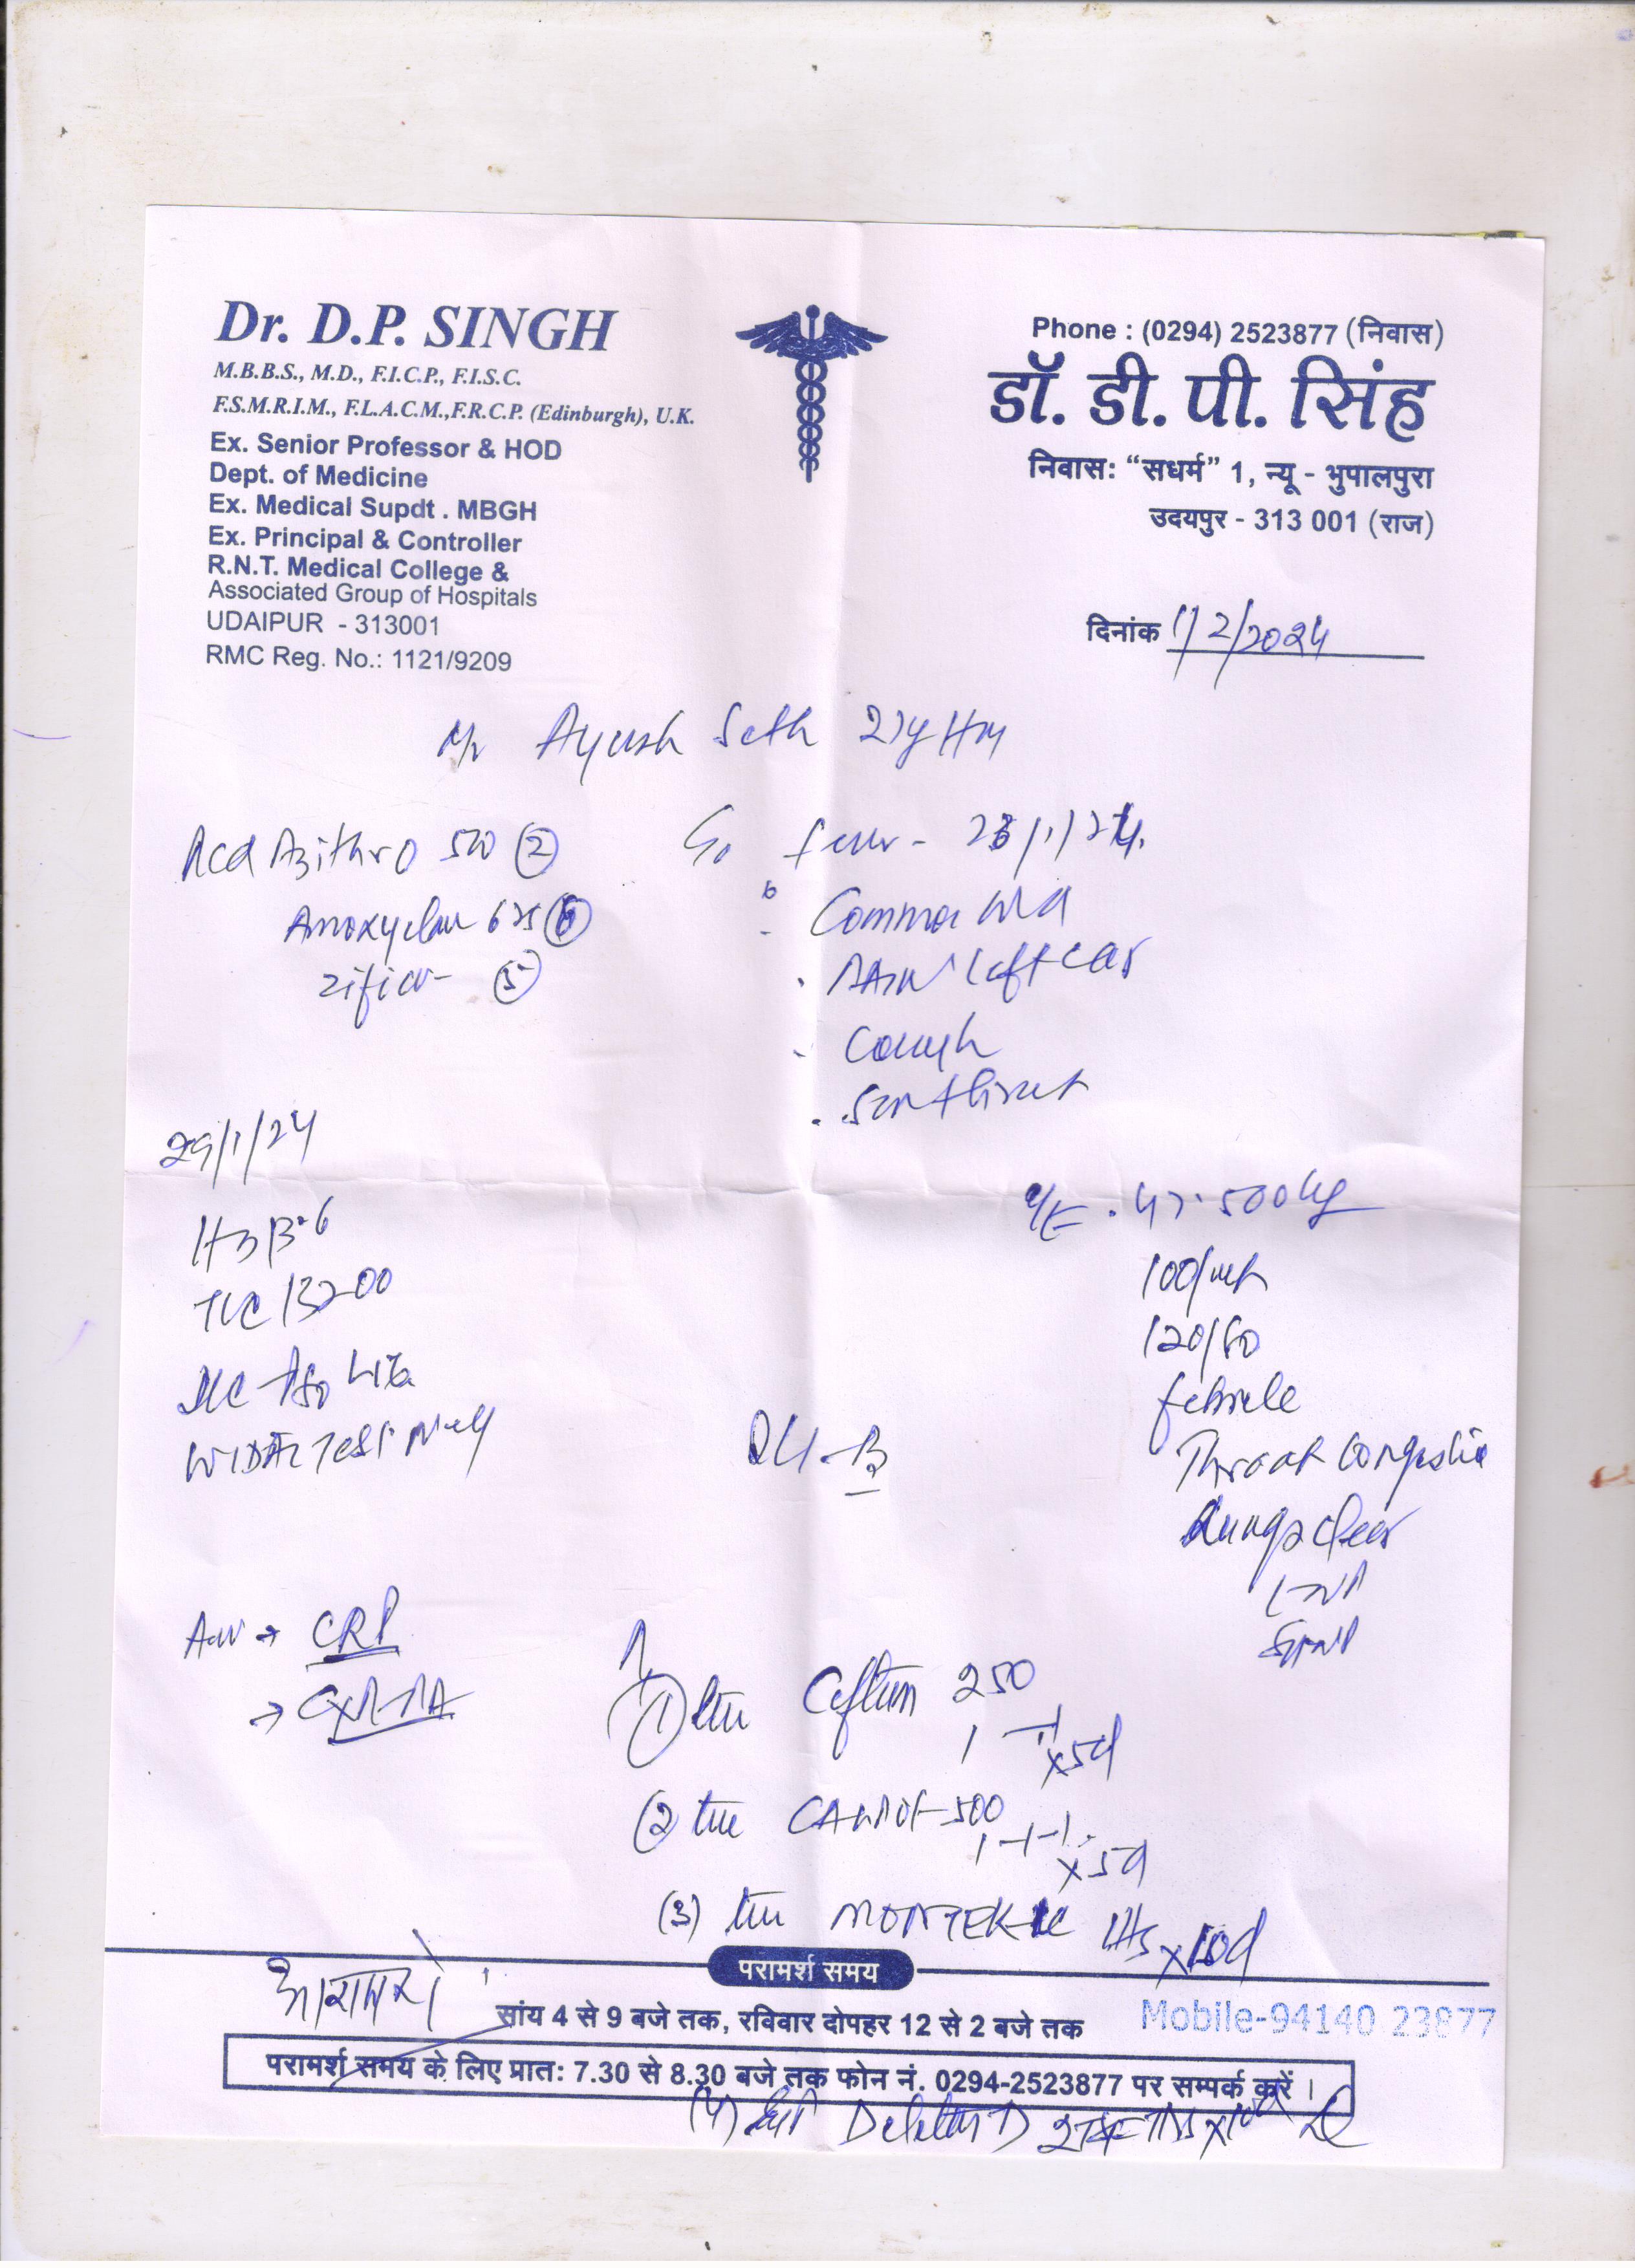 Dr. D.P. SINGH
M.B.B.S., M.D., F.I.C.P., F.I.S.C.
F.S.M.R.I.M., F.L.A.C.M.,F.R.C.P. (Edinburgh), U.K.
Ex. Senior Professor & HOD
Dept. of Medicine
Ex. Medical Supdt . MBGH
Ex. Principal & Controller
R.N.T. Medical College &
Associated Group of Hospitals
UDAIPUR - 313001
RMC Reg. No.: 1121/9209
Phone : (0294) 2523877 (निवास)
डॉ. डी. पी. सिंह
निवास: “सधर्म” 1, न्यू - भुपालपुरा
उदयपुर - 313 001 (राज)
दिनांक 1/2/2024
Mr Ayush Seth
Azithro 500 (2)
Amoxyclav 625
(5)
fever -
Common cold
Pain left ear
Cough
Sore throat
29/1/24
Hb 13.6
TLC 13200
DLC
WIDAL TEST
O/E . 47.500 kg
100/mt
120/80
febrile
Throat Congestion
Lungs clear
Adv → CRP
→ CXR-PA
(1) Ceftum 250
x5d
(2) 500
1-1-1
x5d
(3) MONTEK-LC x10d
परामर्श समय
सांय 4 से 9 बजे तक, रविवार दोपहर 12 से 2 बजे तक
Mobile-94140 23877
परामर्श समय के लिए प्रात: 7.30 से 8.30 बजे तक फोन नं. 0294-2523877 पर सम्पर्क करें ।
(4)